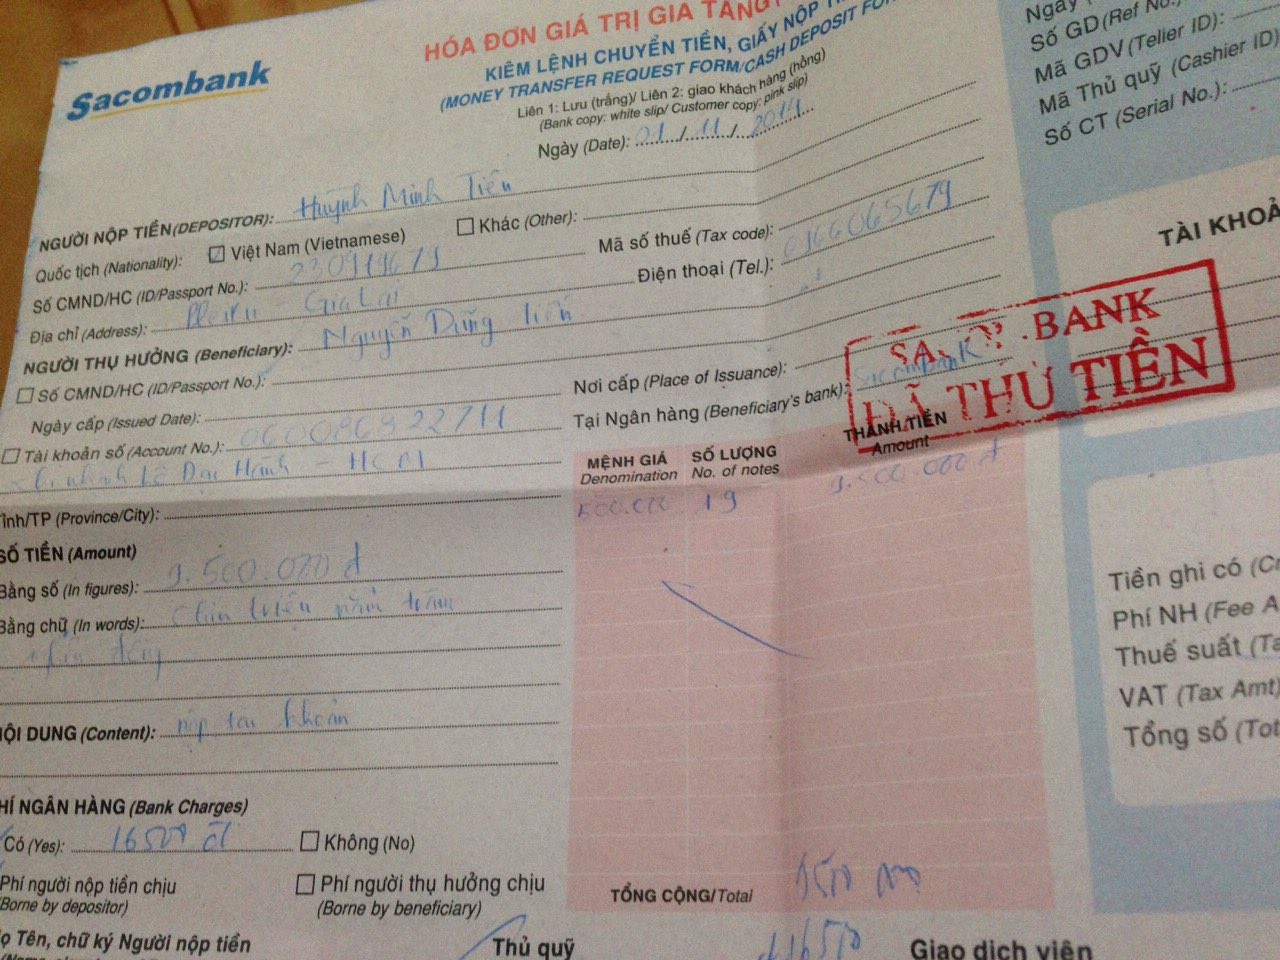 Sacombank
HÓA ĐƠN GIÁ TRỊ GIA TĂNG
KIÊM LỆNH CHUYỂN TIỀN, GIẤY NỘP
(MONEY TRANSFER REQUEST FORM/CASH DEPOSIT FORM
Liên 1: Lưu (trắng)/ Liên 2: giao khách hàng (hồng)
(Bank copy: white slip/ Customer copy: pink slip)
Ngày (Date): 01/11/2014
Số GD (Ref No.)
Mã GDV (Teller ID):
Mã Thủ quỹ (Cashier ID)
Số CT (Serial No.):
NGƯỜI NỘP TIỀN (DEPOSITOR): Huỳnh Minh Tiến
Quốc tịch (Nationality): Việt Nam (Vietnamese) Khác (Other):
Số CMND/HC (ID/Passport No.): Mã số thuế (Tax code):
Địa chỉ (Address): Pleiku - Gia Lai Điện thoại (Tel.):
NGƯỜI THỤ HƯỞNG (Beneficiary): Nguyễn Dũng Tiến
Số CMND/HC (ID/Passport No.): Nơi cấp (Place of Issuance):
Ngày cấp (Issued Date): Tại Ngân hàng (Beneficiary's bank): Sacombank
Tài khoản số (Account No.): 060086822711
Lê Đại Hành - HCM
Tỉnh/TP (Province/City):
TÀI KHOẢ
BANK
ĐÃ THU TIỀN
MỆNH GIÁ SỐ LƯỢNG THÀNH TIỀN
Denomination No. of notes Amount
500.000 19 9.500.000 đ
SỐ TIỀN (Amount)
Bằng số (In figures): 9.500.000 đ
Bằng chữ (In words): Chín triệu năm trăm
nghìn đồng
NỘI DUNG (Content): nộp tài khoản
PHÍ NGÂN HÀNG (Bank Charges)
Có (Yes): 16500 đ Không (No)
Phí người nộp tiền chịu Phí người thụ hưởng chịu
(Borne by depositor) (Borne by beneficiary)
TỔNG CỘNG/Total 9500 000
16500
Họ Tên, chữ ký Người nộp tiền Thủ quỹ Giao dịch viên
Tiền ghi có
Phí NH (Fee
Thuế suất
VAT (Tax Amt)
Tổng số